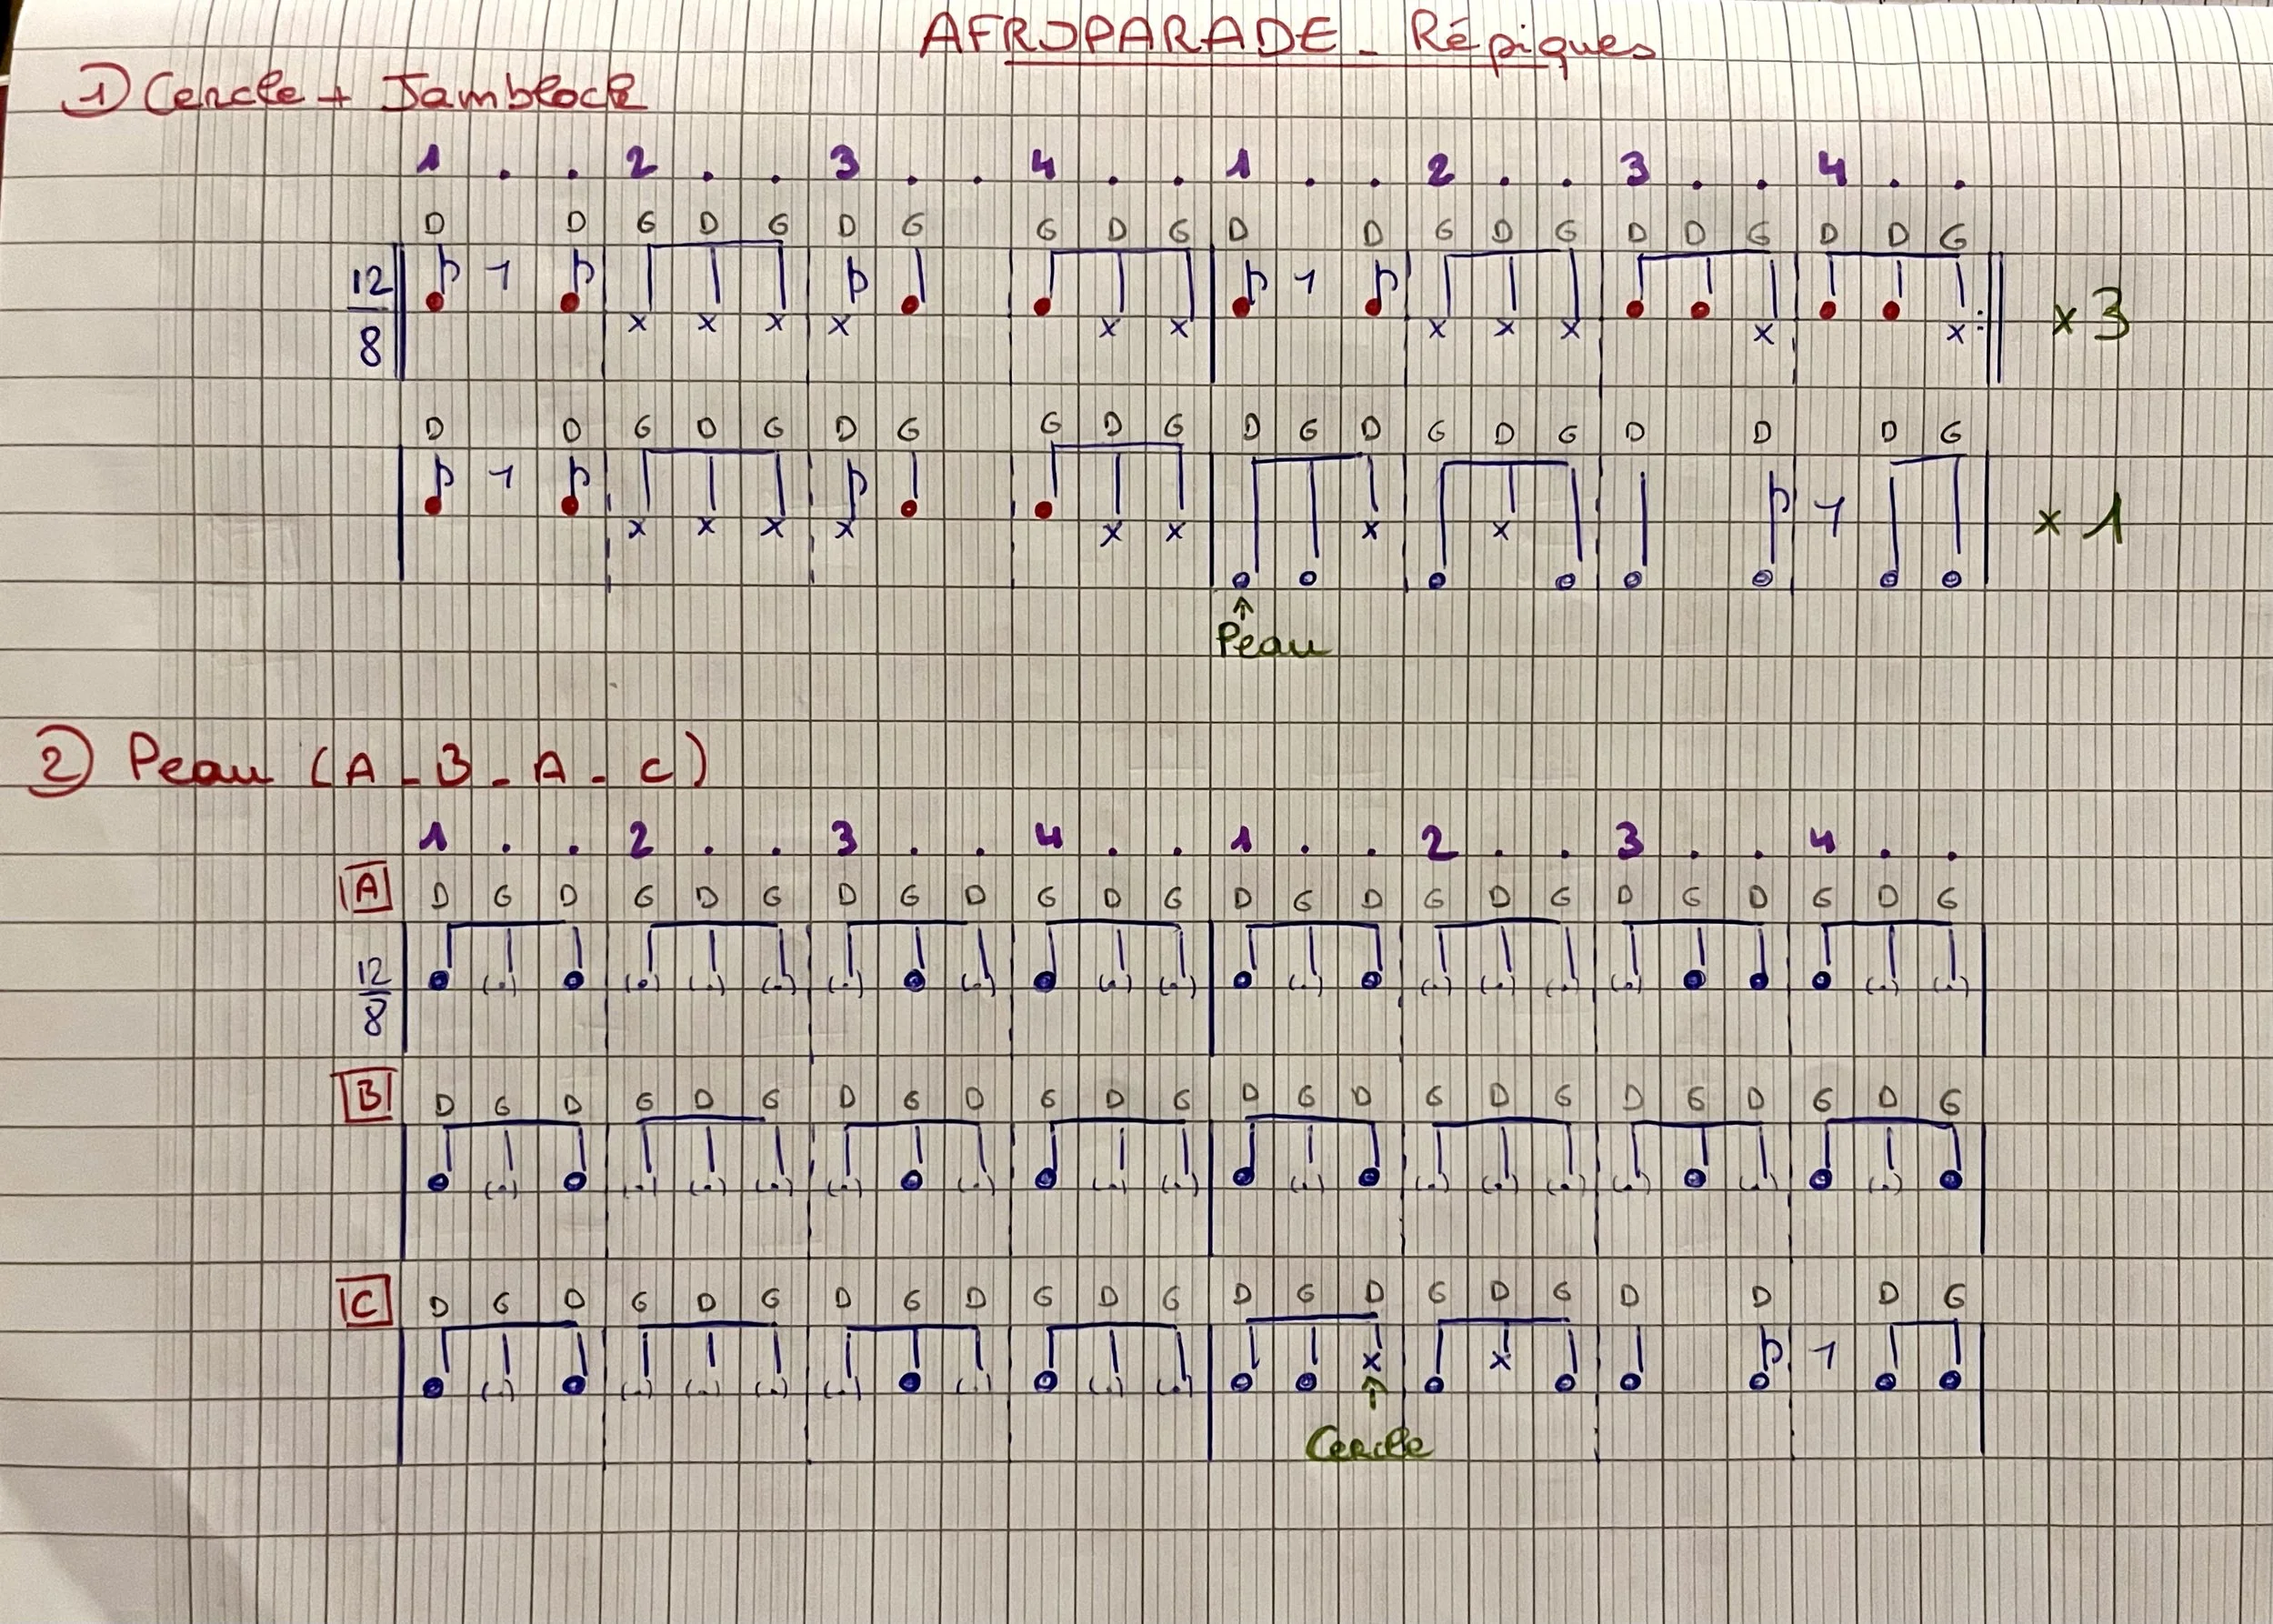 AFROPARADE - Répiques
1) Cercle + Jamblock
1 . . 2 . . 3 . . 4 . . 1 . . 2 . . 3 . . 4 . .
D D G D G D G G D G D D G D G D D G D D G
12/8 x x x x x x x x x x x : x 3
D D G D G D G G D G D G D G D G D D D G
x x x x x x x x x 1
↑
Peau
2) Peau (A - B - A - C)
1 . . 2 . . 3 . . 4 . . 1 . . 2 . . 3 . . 4 . .
A D G D G D G D G D G D G D G D G D G D G D G D G
12/8 (.) (.) (.) (.) (.) (.) (.) (.) (.) (.) (.) (.) (.) (.) (.)
B D G D G D G D G D G D G D G D G D G D G D G D G
(.) (.) (.) (.) (.) (.) (.) (.) (.) (.) (.) (.) (.) (.) (.)
C D G D G D G D G D G D G D G D G D G D D D G
(.) (.) (.) (.) (.) (.) (.) (.) x x
↑
Cercle